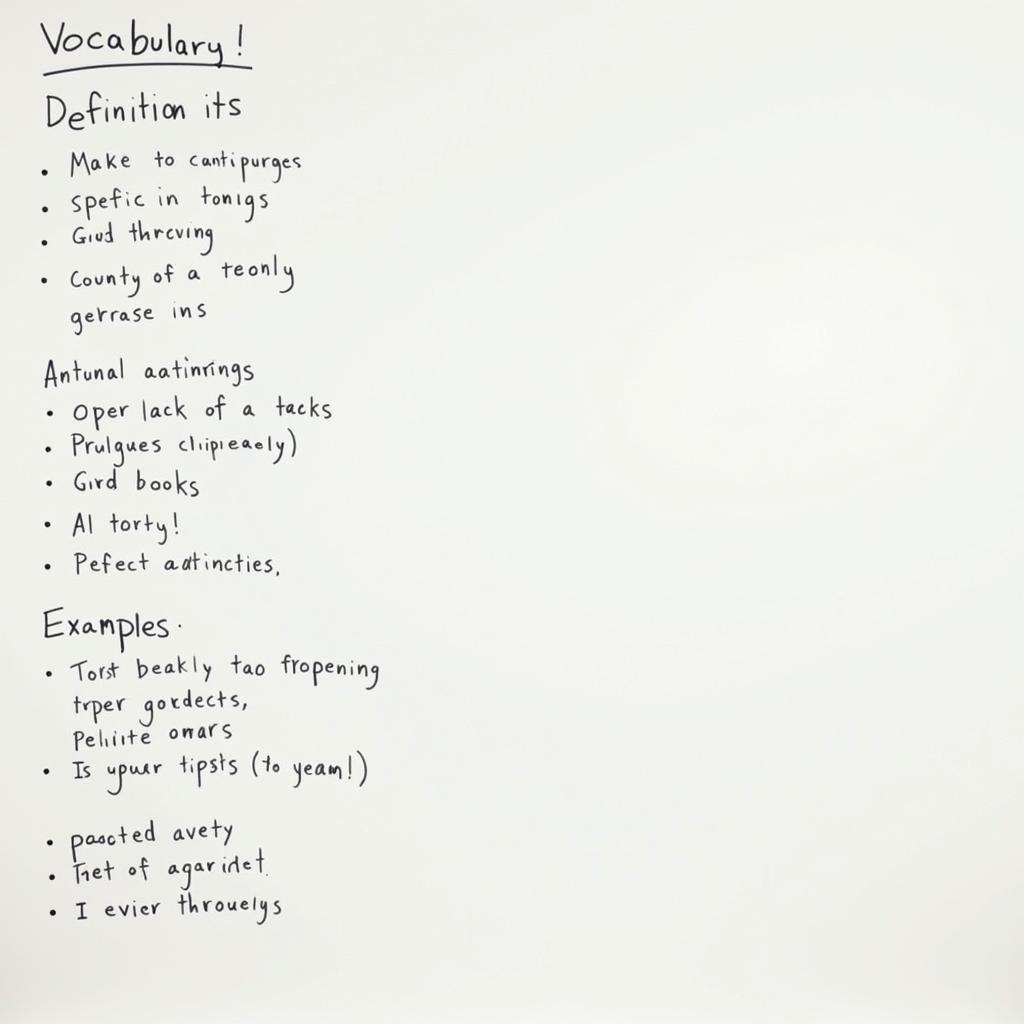 Vocabulary!
Definition its
• Make to cantipurges
• spefic in tonigs
• Giud threving
• County of a teonly
gerrase ins
Antunal aatinrings
• Oper lack of a tacks
• Prulgues cliipreaely)
• Gird books
• AI torty!
• Pefect adtincties,
Examples.
• Torst beakly tao fropening
trper gordects,
Peliite omars
• Is ypuur tipsts (to yeam!)
• pasocted avety
• Tret of agaridet.
• I evier throuelys